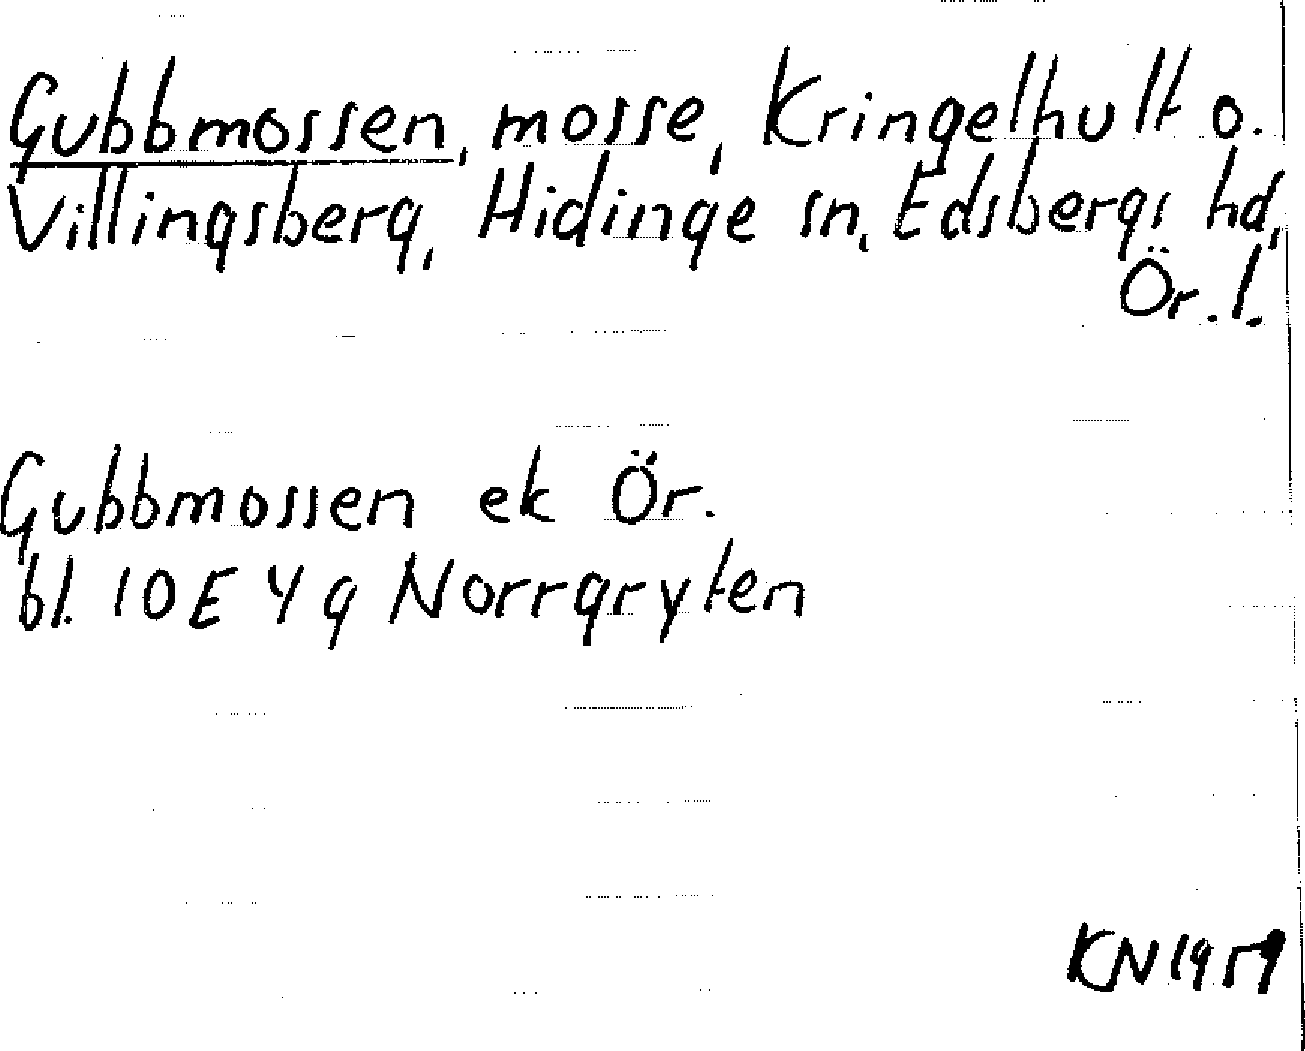 Gubbmossen, mosse, Kringelhult o.
Villingsberg, Hidinge sn, Edsbergs hd,
Ör. l.
Gubbmossen ek Ör.
bl. 10E 4g Norrgryten
KN 1959